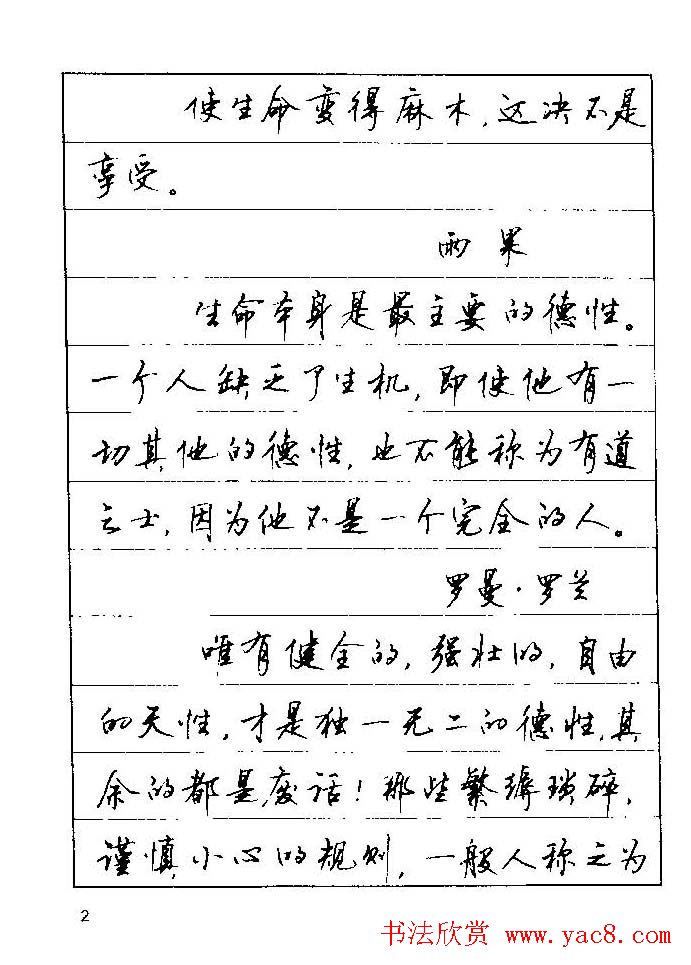 使生命变得麻木，这决不是
享受。
雨果
生命本身是最主要的德性。
一个人缺乏了生机，即使他有一
切其他的德性，也不能称为有道
之士，因为他不是一个完全的人。
罗曼·罗兰
唯有健全的，强壮的，自由
的天性，才是独一无二的德性，其
余的都是废话！那些繁缛琐碎，
谨慎小心的规则，一般人称之为
2
书法欣赏 www.yac8.com